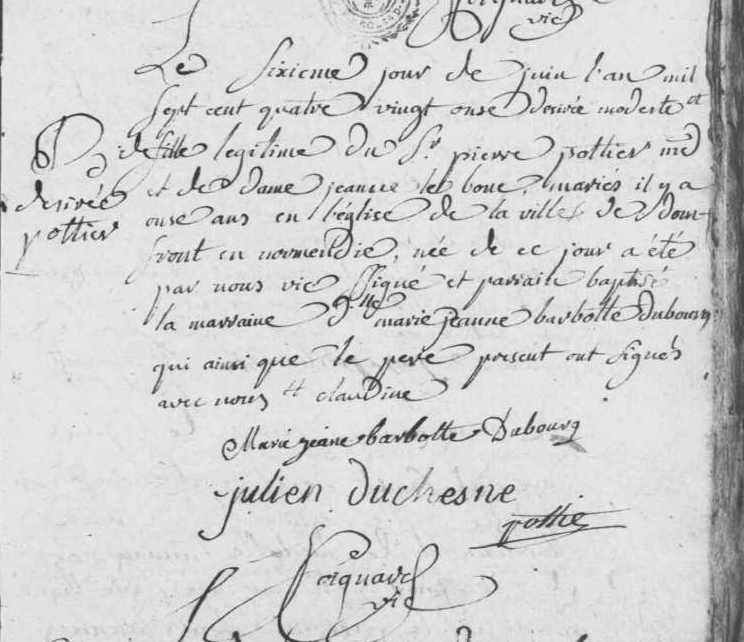 vic
Le sixieme jour de juin l'an mil
sept cent quatre vingt onse desirée modeste #
fille legitime du Sr. pierre pottier md
desirée
et de dame jeanne le bouc, mariés il y a
pottier
onse ans en l'église de la ville de dom-
front en normendie, née de ce jour a été
par nous vic signé et parrain baptisé
la marraine d.lle marie jeanne barbotte dubourg
qui ainsi que le pere present ont signés
avec nous # claudine
Marie jeane barbotte Dubourg
julien duchesne
pottie
vic